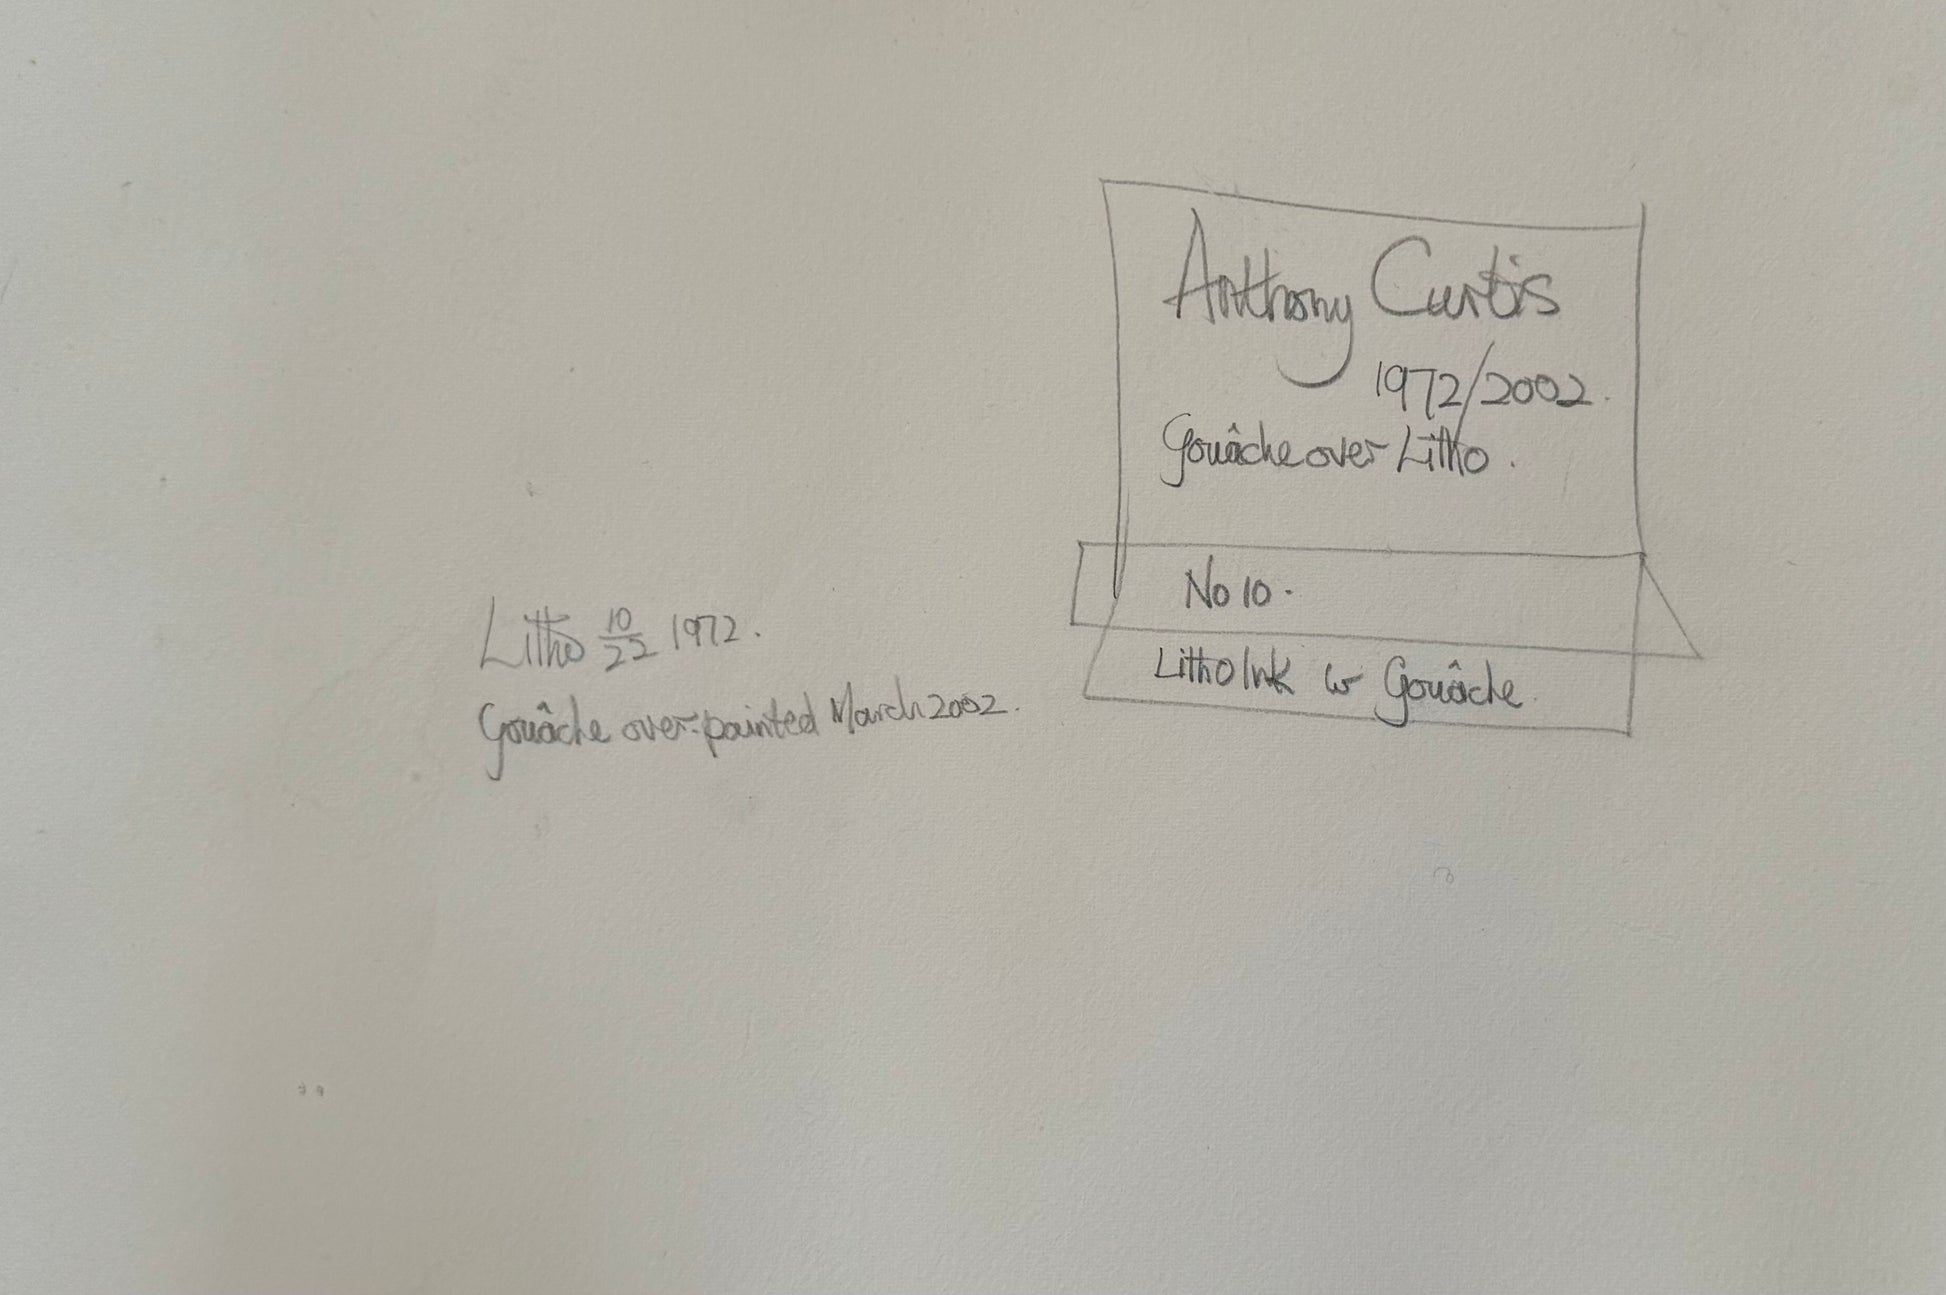 Anthony Curtis
1972/2002.
Gouâche over Litho.
No 10.
Litho Ink w Gouâche.
Litho 10/22 1972.
Gouâche over-painted March 2002.